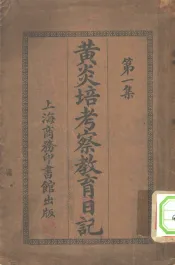 第一集
黃炎培考察教育日記
上海商務印書館出版